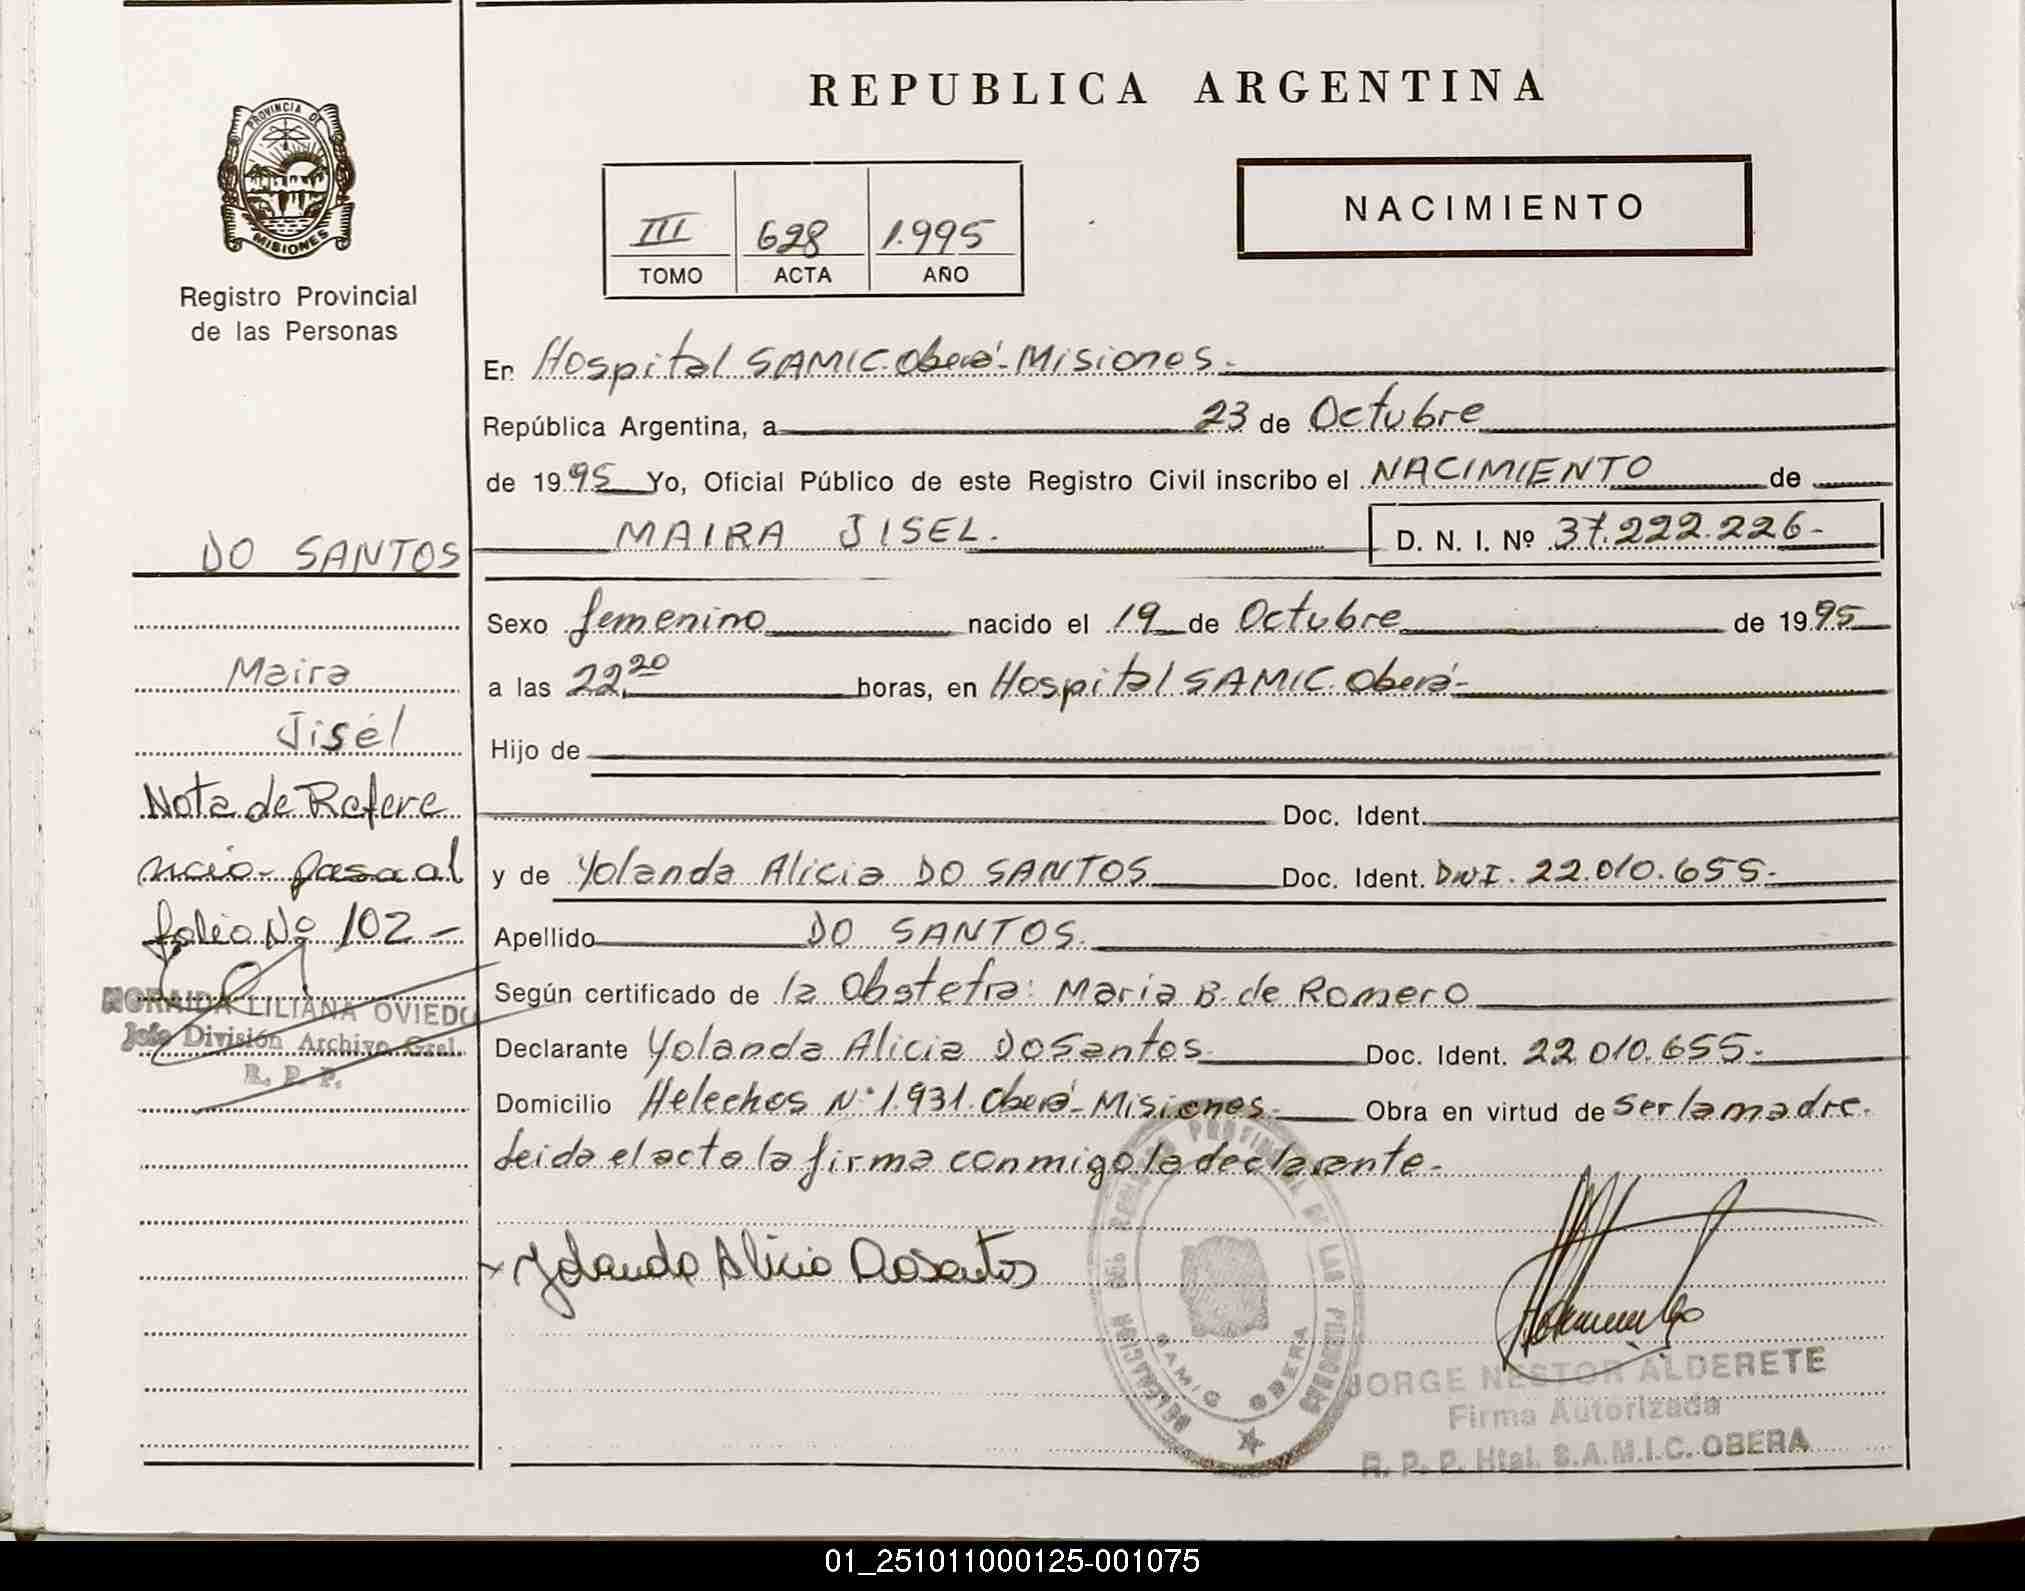 REPUBLICA ARGENTINA
PROVINCIA DE
MISIONES
Registro Provincial
de las Personas
III 628 1.995
TOMO ACTA AÑO
NACIMIENTO
En Hospital SAMIC. Oberá - Misiones.-
República Argentina, a 23 de Octubre
de 1995 Yo, Oficial Público de este Registro Civil inscribo el NACIMIENTO de
MAIRA JISEL. D. N. I. Nº 37.222.226-
Sexo femenino nacido el 19 de Octubre de 1995
a las 22.20 horas, en Hospital SAMIC. Oberá-
Hijo de
Doc. Ident.
y de Yolanda Alicia DO SANTOS Doc. Ident. DNI. 22.010.655.-
Apellido DO SANTOS.
Según certificado de la Obstetra: Maria B. de Romero
Declarante Yolanda Alicia DoSantos Doc. Ident. 22.010.655.-
Domicilio Helechos Nº 1.931. Oberá - Misiones.- Obra en virtud de ser la madre.
Leida el acta la firma conmigo la declarante.-
DO SANTOS
Maira
Jisel
Nota de Refere
ncia - pasa al
folio Nº 102 -
NORAIDA LILIANA OVIEDO
Jefe División Archivo Gral.
R. P. P.
Yolanda Alicia Dosantos
DELEGACION DEL REGISTRO PROVINCIAL DE LAS PERSONAS
SAMIC OBERA
JORGE NESTOR ALDERETE
Firma Autorizada
R. P. P. Htal. S.A.M.I.C. OBERA
01_251011000125-001075